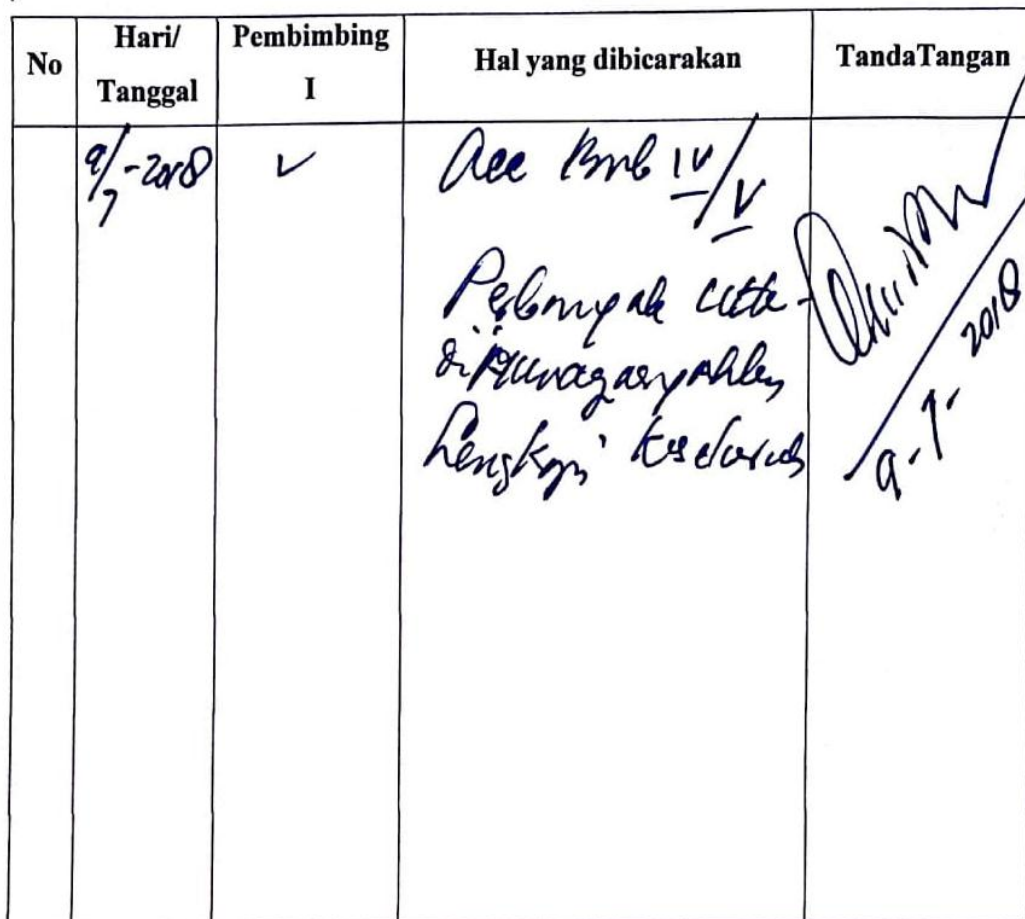 No
Hari/
Tanggal
Pembimbing
I
Hal yang dibicarakan
TandaTangan
9/7-2018
Acc Bab IV/V
Perbanyak utk
dimunaqasyahkan
Lengkapi
9-7-2018